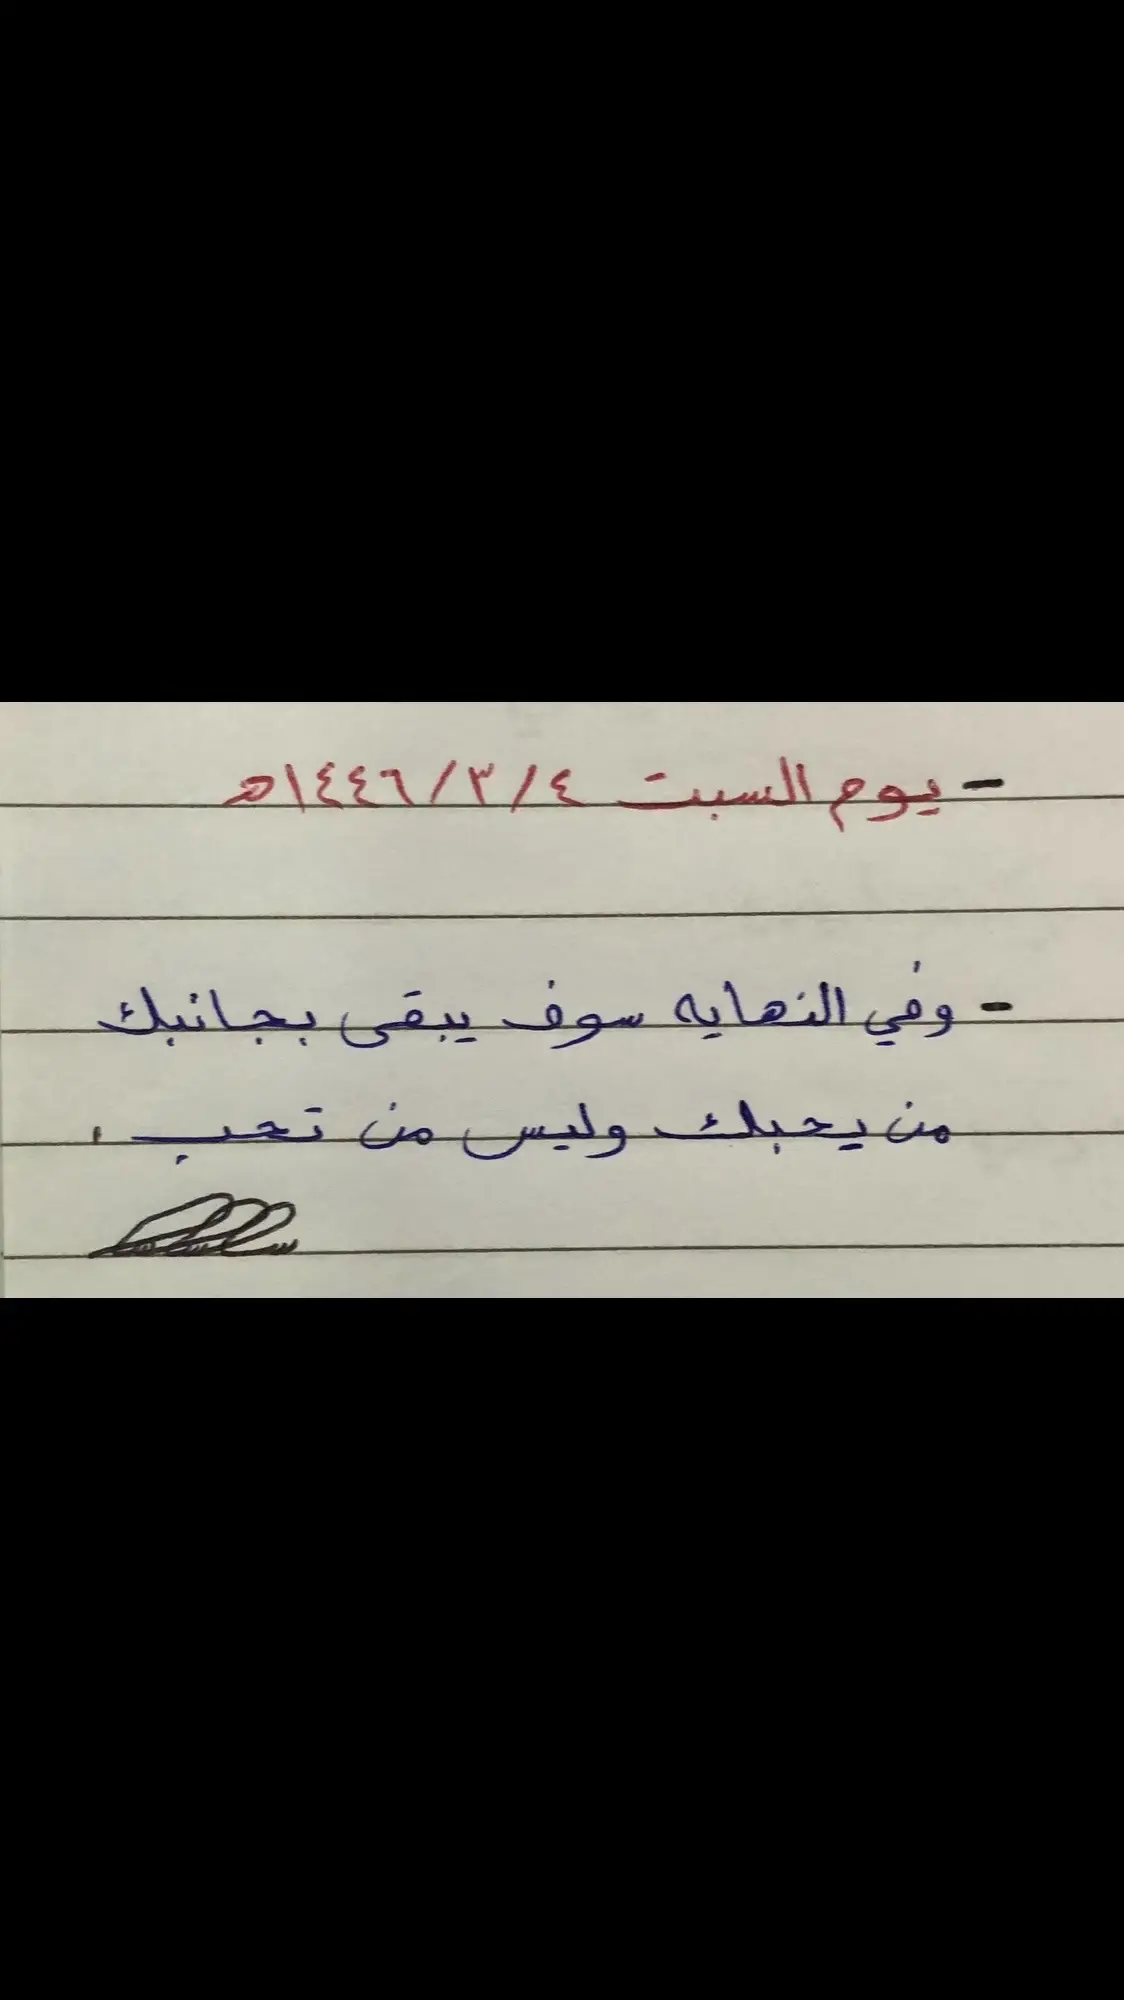 - يوم السبت ٤/٣/١٤٤٦هـ
- وفي النهايه سوف يبقى بجانبك
من يحبك وليس من تحب .